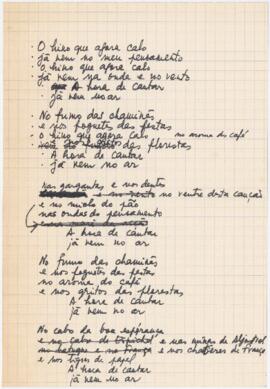 O hino que agora calo
já nem no meu pensamento
O hino que agora calo
já nem na onda e no vento
A hora de cantar
já nem no ar
No fumo das chaminés
e nos foguetes das festas
o hino que agora calo no aroma do café
das florestas
A hora de cantar
já nem no ar
nas gargantas e nos dentes
no ventre desta canção
e no miolo do pão
nas ondas do pensamento
A hora de cantar
já nem no ar
No fumo das chaminés
e nos foguetes das festas
no aroma do café
e nos gritos das florestas
A hora de cantar
já nem no ar
No cabo da boa esperança
e nas minas de
e nos
e nos tigres de papel
A hora de cantar
já nem no ar